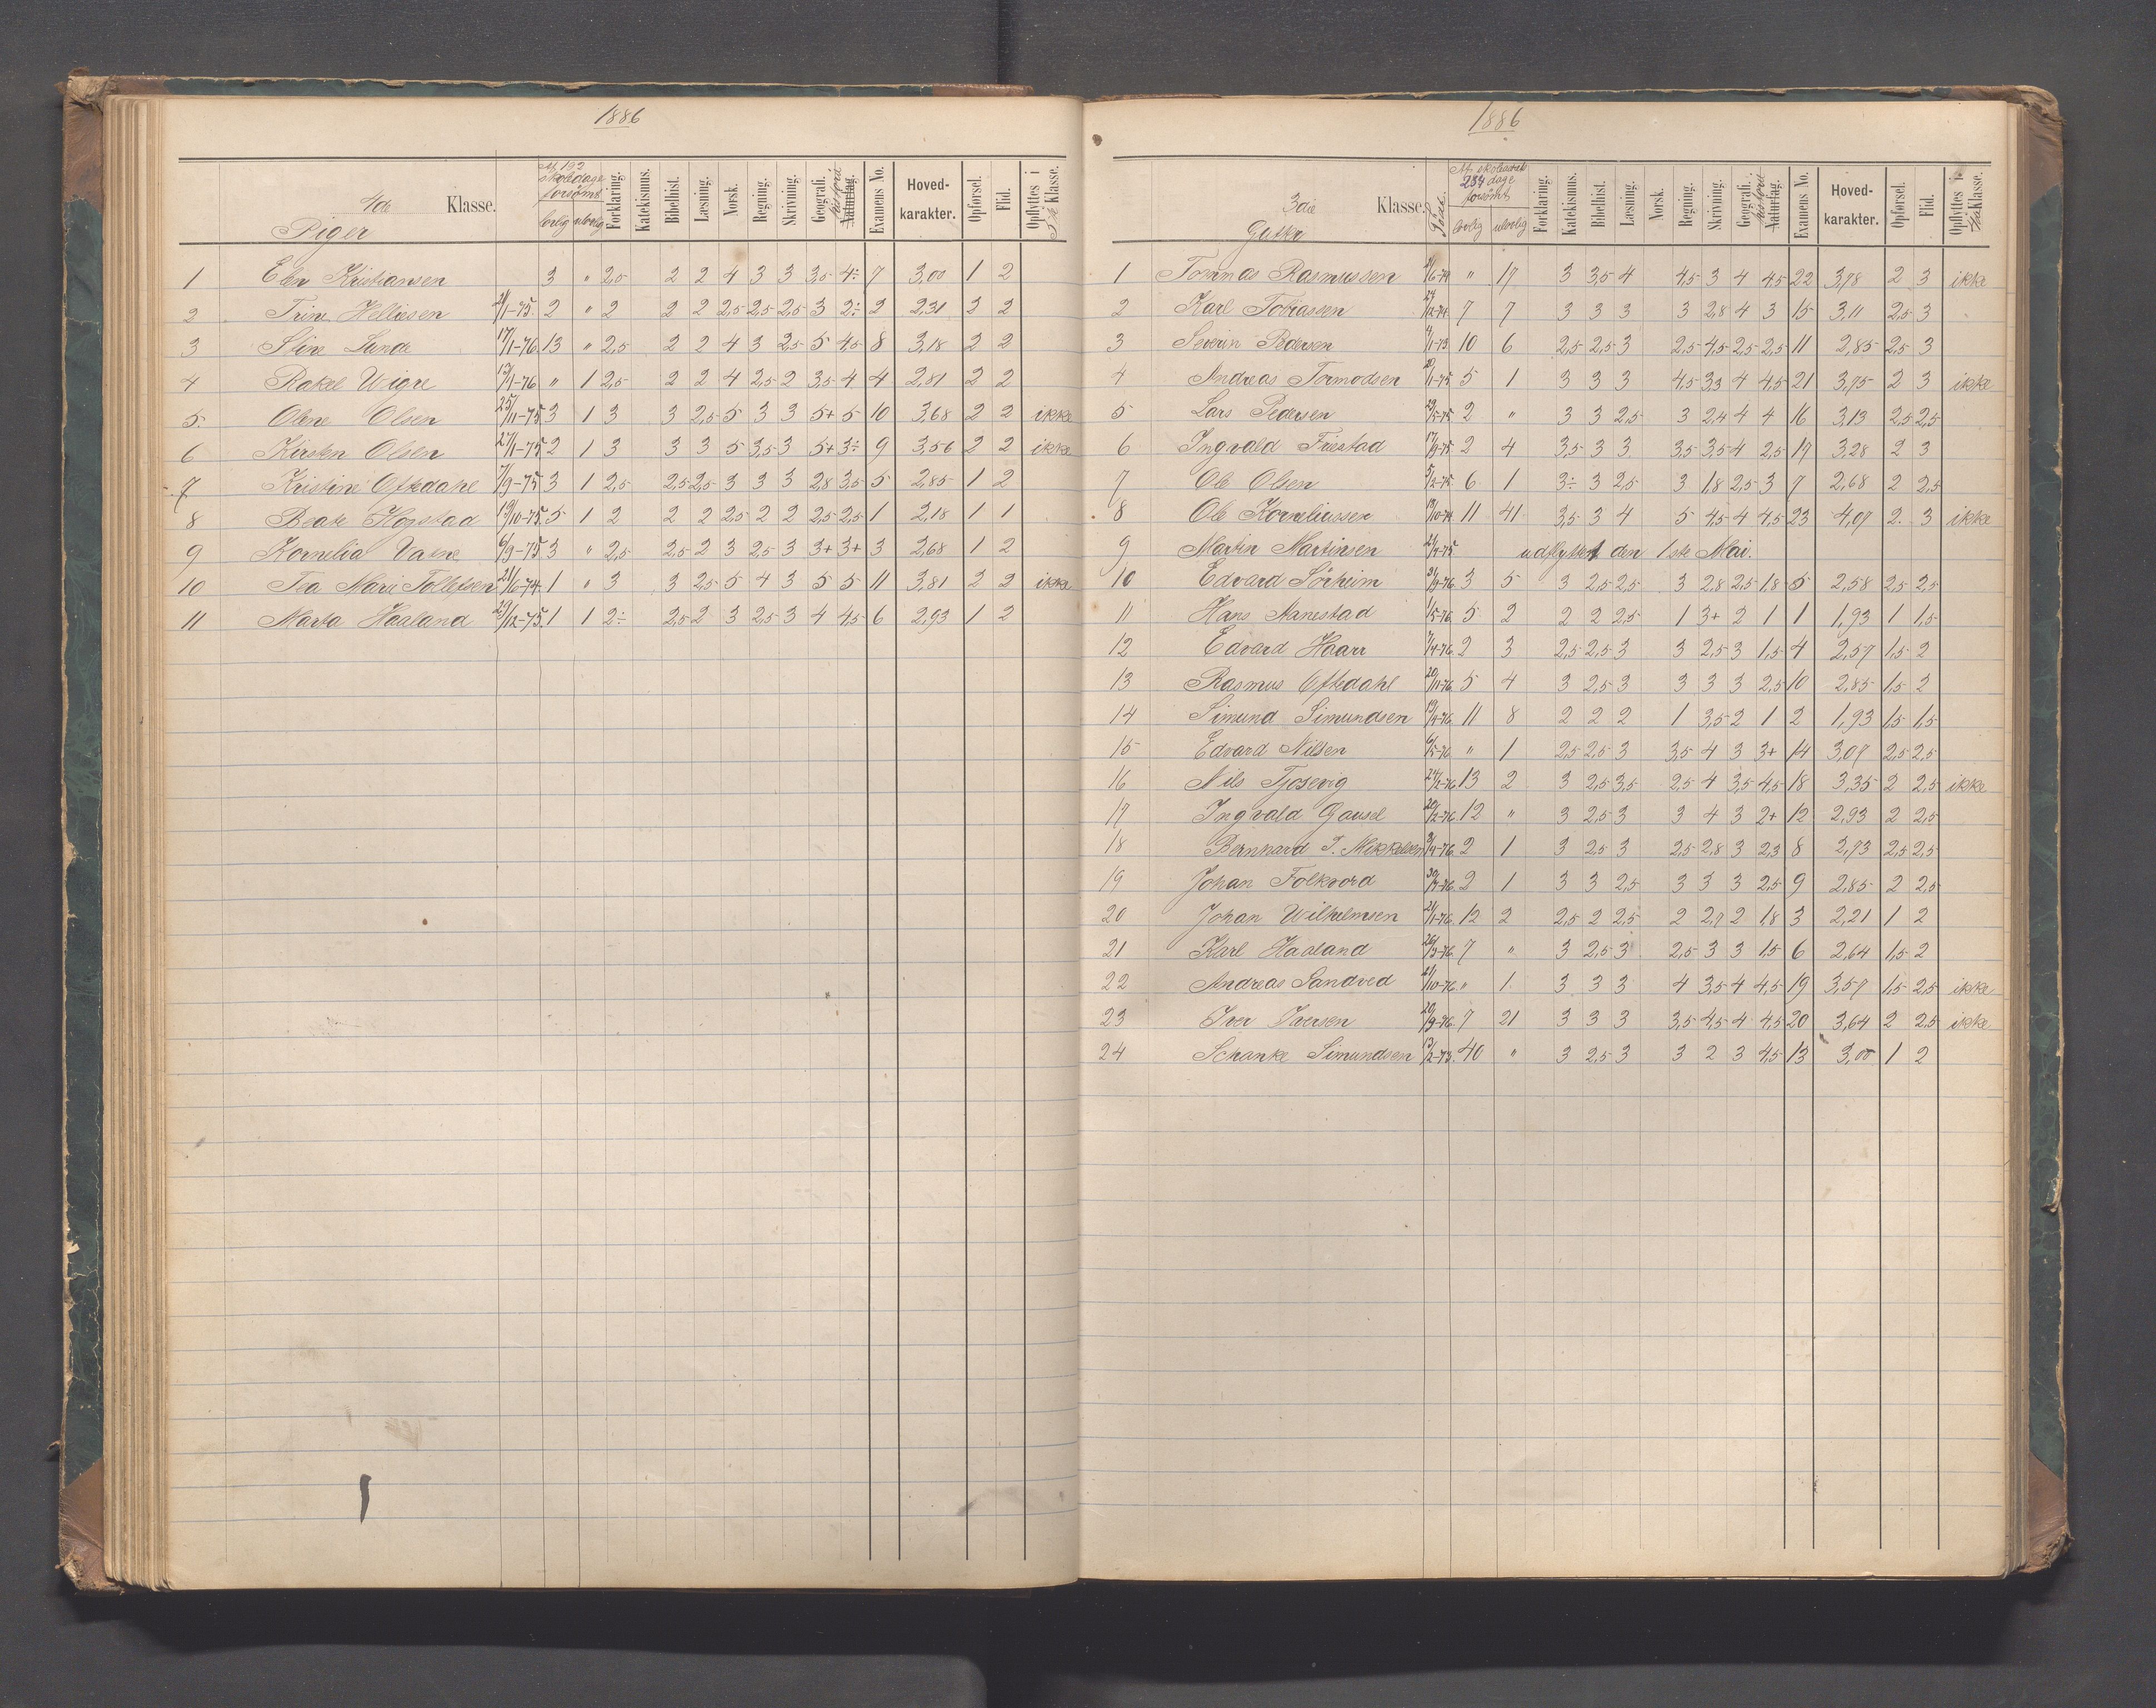 1886
4de Klasse.
Piger
Af 192 skoledage forsömt
lovlig ulovlig
Forklaring. Katekismus. Bibelhist. Læsning. Norsk. Regning. Skrivning. Geografi. historie Naturfag. Examens No. Hoved-karakter. Opførsel. Flid. Opflyttes i 5te Klasse.
1 Elen Kristiansen 3 " 2,5 2 2 4 3 3 3,5 4÷ 7 3,00 1 2
2 Trine Helliesen 21/1-75. 2 " 2 2 2 2,5 2,5 2,5 3 2÷ 2 2,31 2 2
3 Stine Lunde 17/1-76. 13 " 2,5 2 2 4 3 2,5 5 4,5 8 3,18 2 2
4 Rakel Wigre 13/1-76 " 1 2,5 2 2 4 2,5 2 3,5 4 4 2,81 2 2
5 Olene Olsen 25/11-75 3 1 3 3 2,5 5 3 3 5+ 5 10 3,68 2 2 ikke
6 Kirsten Olsen 27/1-75 2 1 3 3 3 5 3,5 3 5+ 3÷ 9 3,56 2 2 ikke
7 Kristine Oftedahl 7/9-75 3 1 2,5 2,5 2,5 3 3 3 2,8 3,5 5 2,85 1 2
8 Beate Hogstad 19/10-75. 5 1 2 2 2 2,5 2 2 2,5 2,5 1 2,18 1 1
9 Kornelia Vasne 6/9-75 3 " 2,5 2,5 2 3 2,5 3 3+ 3+ 3 2,68 1 2
10 Ta Marie Tollefsen 21/6-74. 1 " 3 3 2,5 5 4 3 5 5 11 3,81 2 2 ikke
11 Marta Haaland 29/12-75. 1 1 2÷ 2,5 2 3 2,5 3 4 4,5 6 2,93 1 2
1886
3die Klasse.
Gutter
Född. Af skoleaarets 234 dage forsömt
lovlig ulovlig
Forklaring. Katekismus. Bibelhist. Læsning. Norsk. Regning. Skrivning. Geografi. historie Naturfag. Examens No. Hoved-karakter. Opførsel. Flid. Opflyttes i 4de Klasse.
1 Tommas Rasmussen /6-74 " 17 3 3,5 4 4,5 3 4 4,5 22 3,78 2 3 ikke
2 Karl Tobiassen 24/12-74. 7 7 3 3 3 3 2,8 4 3 15 3,11 2,5 3
3 Severin Pedersen 4/1-73 10 6 2,5 2,5 3 2,5 4,5 2,5 2,5 11 2,85 2,5 3
4 Andreas Tormodsen 20/11-75 5 1 3 3 3 4,5 3,3 4 4,5 21 3,75 2 3 ikke
5 Lars Pedersen 23/5-75 2 " 3 3 2,5 3 2,4 4 4 16 3,13 2,5 2,5
6 Ingvald Friestad 17/9-75 2 4 3,5 3 3 3,5 3,5 4 2,5 17 3,28 2 3
7 Ole Olsen 5/2-75. 6 1 3÷ 3 2,5 3 1,8 2,5 3 7 2,68 2 2,5
8 Ole Korneliussen 13/10-74. 11 41 3,5 3 4 5 4,5 4 4,5 23 4,07 2. 3 ikke
9 Martin Martinsen 21/4-75 udflyttet den 1ste Mai.
10 Edvard Sörheim 31/3-76. 3 5 3 2,5 2,5 3 2,8 2,5 1,8 5 2,58 2,5 2,5
11 Hans Manestad 1/5-76. 5 2 2 2 2,5 1 3+ 2 1 1 1,93 1 1,5
12 Edvard Haarr 7/4-76. 2 3 2,5 2,5 3 3 2,5 3 1,5 4 2,57 1,5 2
13 Rasmus Oftedahl 20/11-76. 5 4 3 2,5 3 3 3 3 2,5 10 2,85 1,5 2
14 Simund Simundsen 13/4-76. 11 8 2 2 2 1 3,5 2 1 2 1,93 1,5 1,5
15 Edvard Nilsen 6/5-76 " 1 2,5 2,5 3 3,5 4 3 3+ 14 3,07 2,5 2,5
16 Nils Tjosevig 24/2-76. 13 2 3 2,5 3,5 2,5 4 3,5 4,5 18 3,35 2 2,5 ikke
17 Ingvald Gausel 20/2-76. 12 " 3 2,5 3 3 4 3 2+ 12 2,93 2 2,5
18 Bernhard T. Mikkelsen 3/4-76. 2 1 3 2,5 3 2,5 2,8 3 2,3 8 2,73 2,5 2,5
19 Johan Folkvord 30/7-76. 2 1 3 3 2,5 3 3 3 2,5 9 2,85 2 2,5
20 Johan Wilhelmsen 21/1-76. 12 2 2,5 2 2,5 2 2,7 2 1,8 3 2,21 1 2
21 Karl Haaland 26/3-76. 7 " 3 2,5 3 2,5 3 3 1,5 6 2,64 1,5 2
22 Andreas Sandved 21/10-76. " 1. 3 3 3 4 3,5 4 4,5 19 3,57 1,5 2,5 ikke
23 Iver Iversen 29/9-76. 7 21 3 3 3 3,5 4,5 4 4,5 20 3,64 2 2,5 ikke
24 Schanke Simundsen 13/2-73. 40 " 3 2,5 3 3 2 3 4,5 13 3,00 1 2